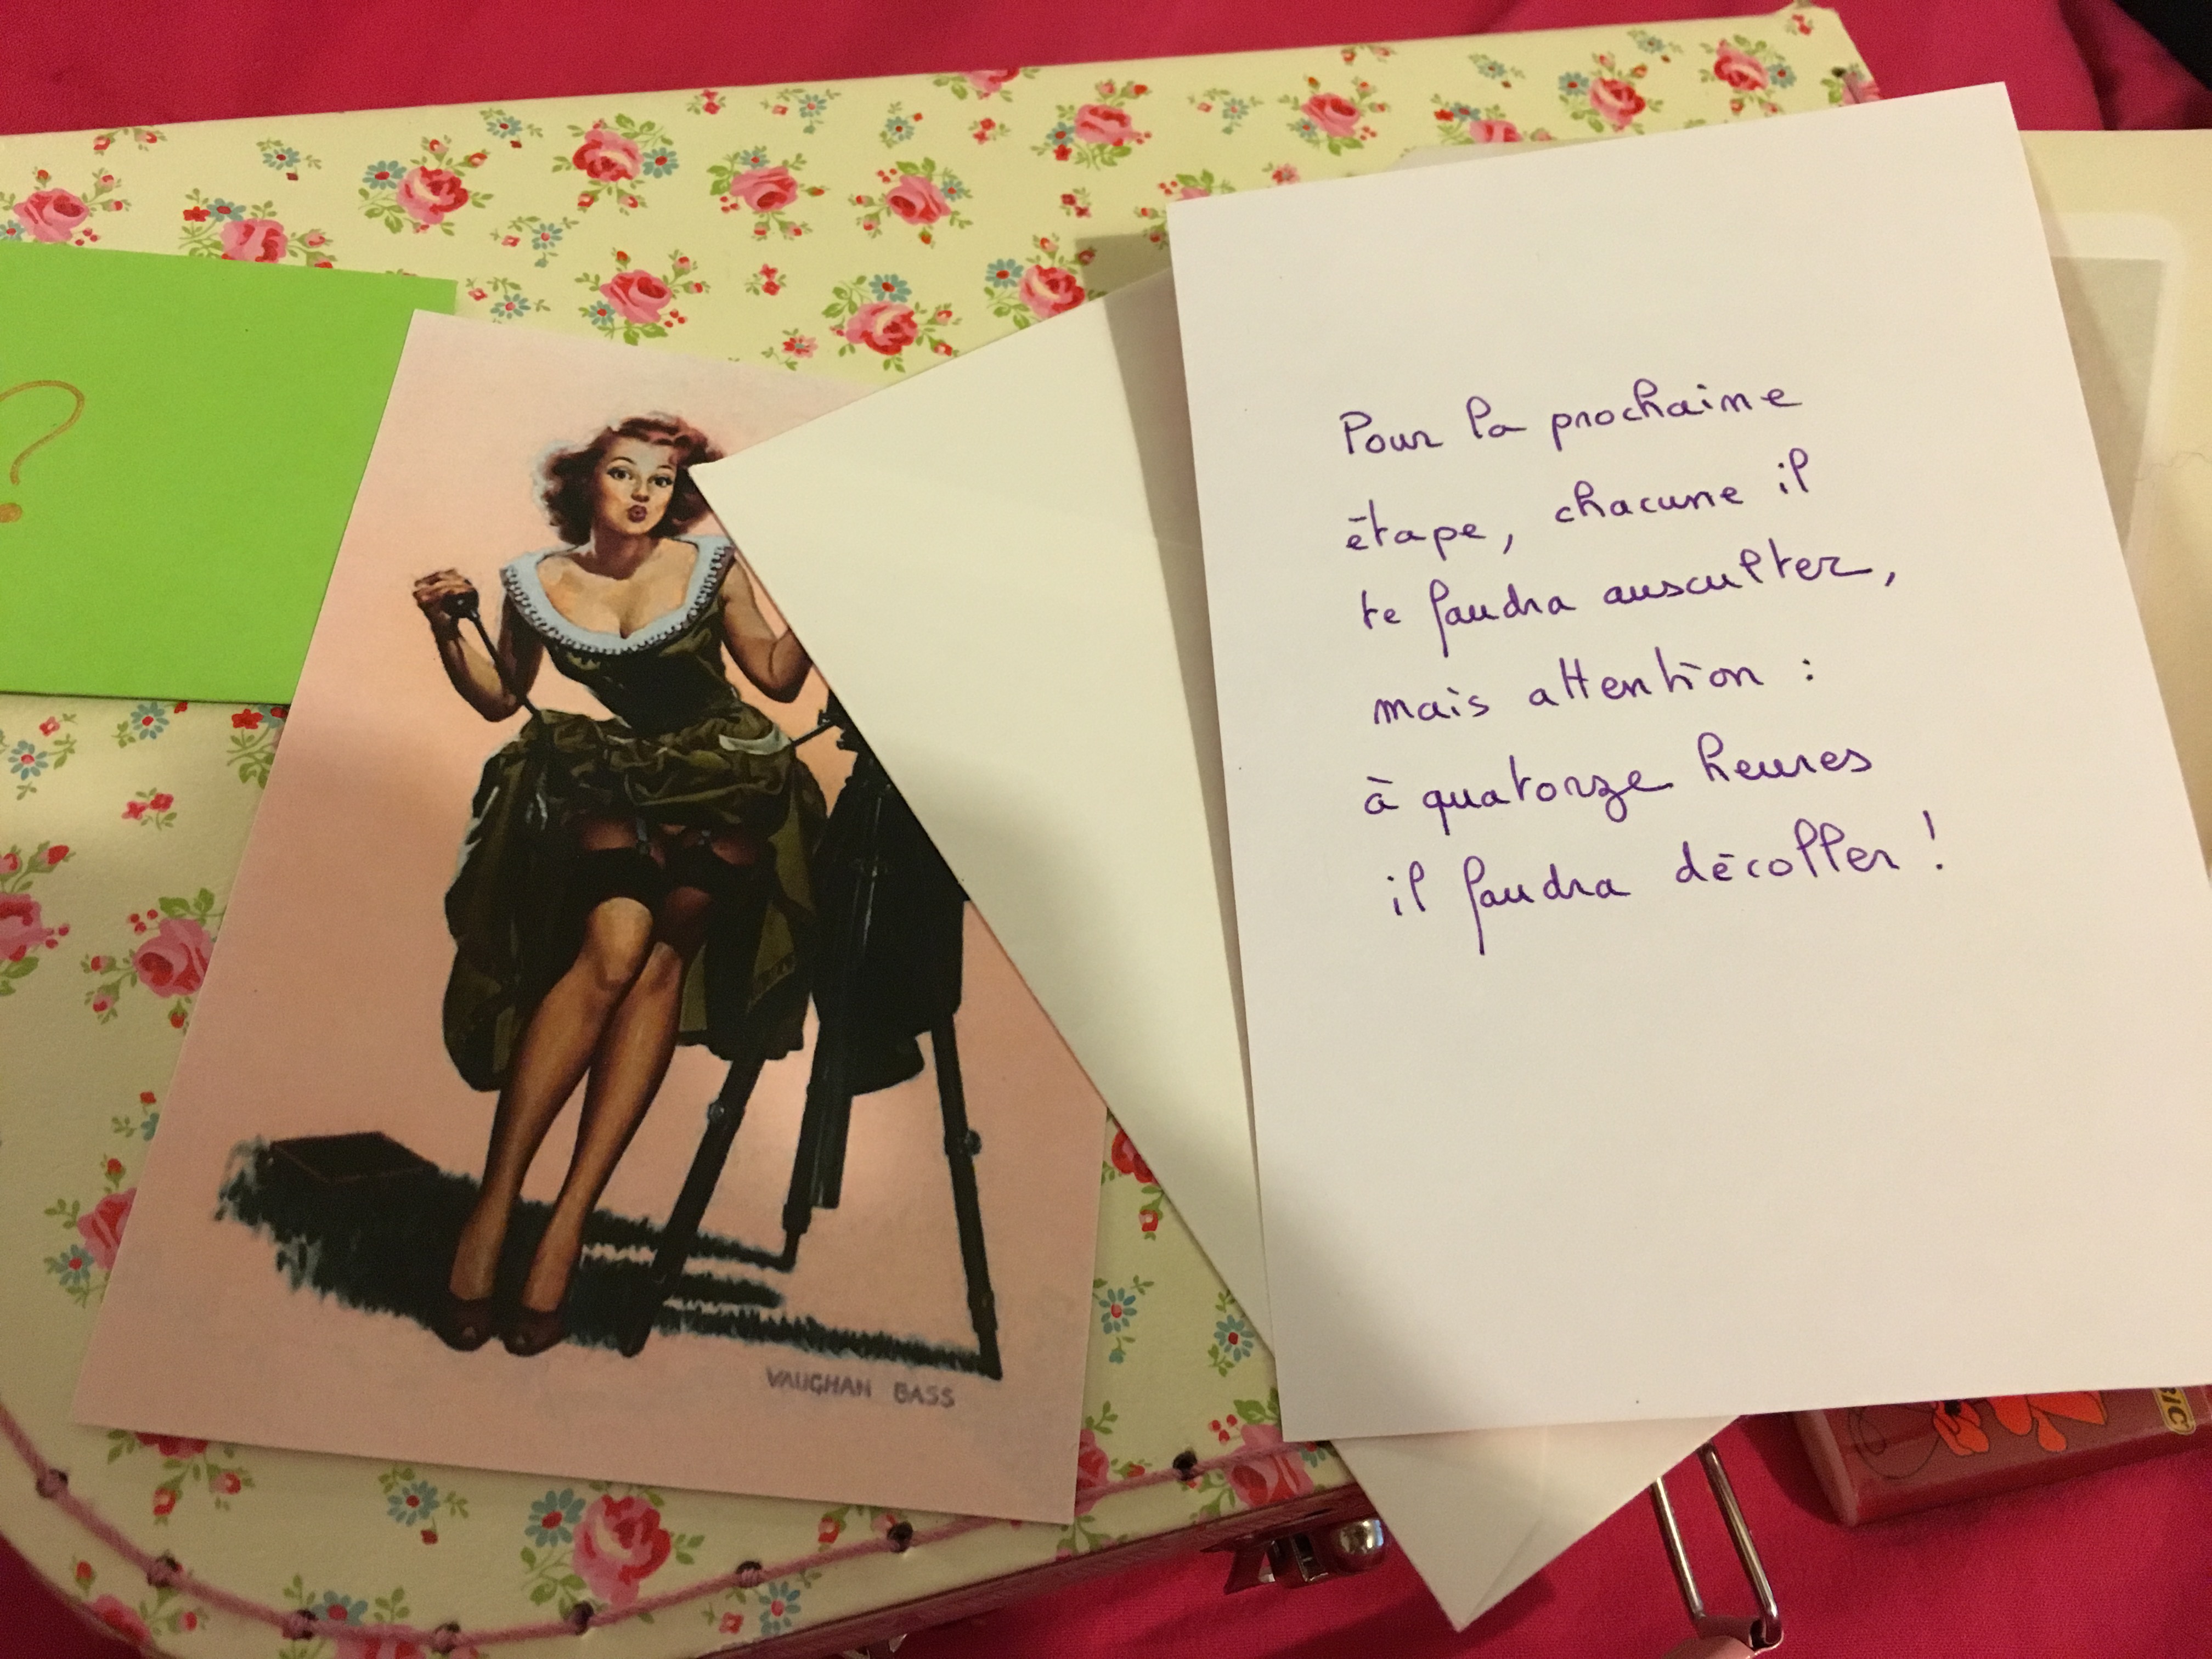 ?
VAUGHAN BASS
Pour la prochaine
étape, chacune il
te faudra ausculter,
mais attention :
à quatorze heures
il faudra décoller !
BIC